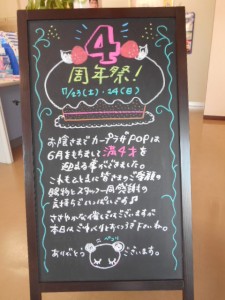 4
周年祭!
11/23(土)・24(日)
お陰さまで カーブラザPOPは
6月をもちまして 満4才を
迎える事ができました。
これもひとえに皆さまのご愛顧の
賜物とスタッフ一同感謝の
気持ちでいっぱいです♪
ささやかな催しではございますが
本日はごゆっくりおたのしみ下さいね。
ペコリ
ありがとう ございます。